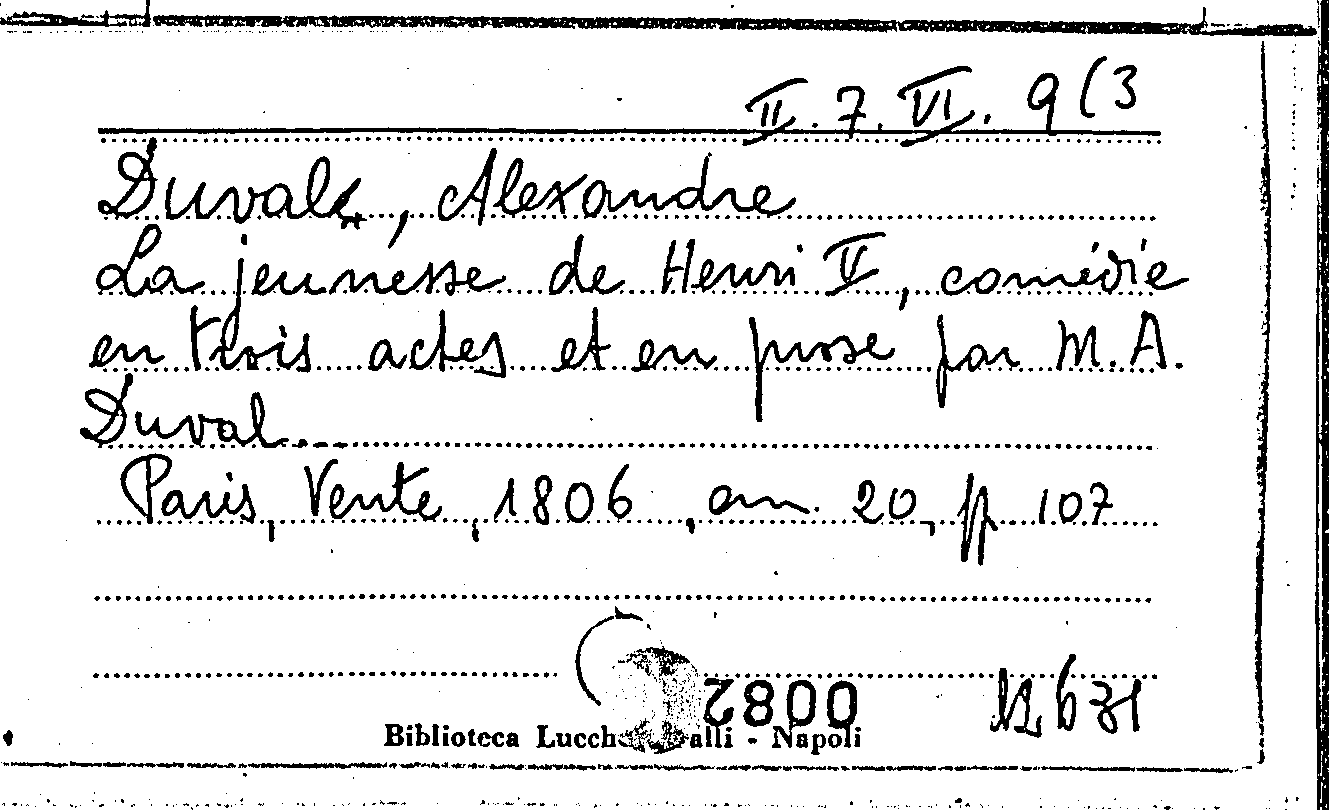 II. 7. VI. 9 (3
Duval, Alexandre
La jeunesse de Henri V, comédie
en trois actes et en prose par M. A.
Duval...
Paris, Vente, 1806, an. 20, pp 107
0082
Biblioteca - Napoli